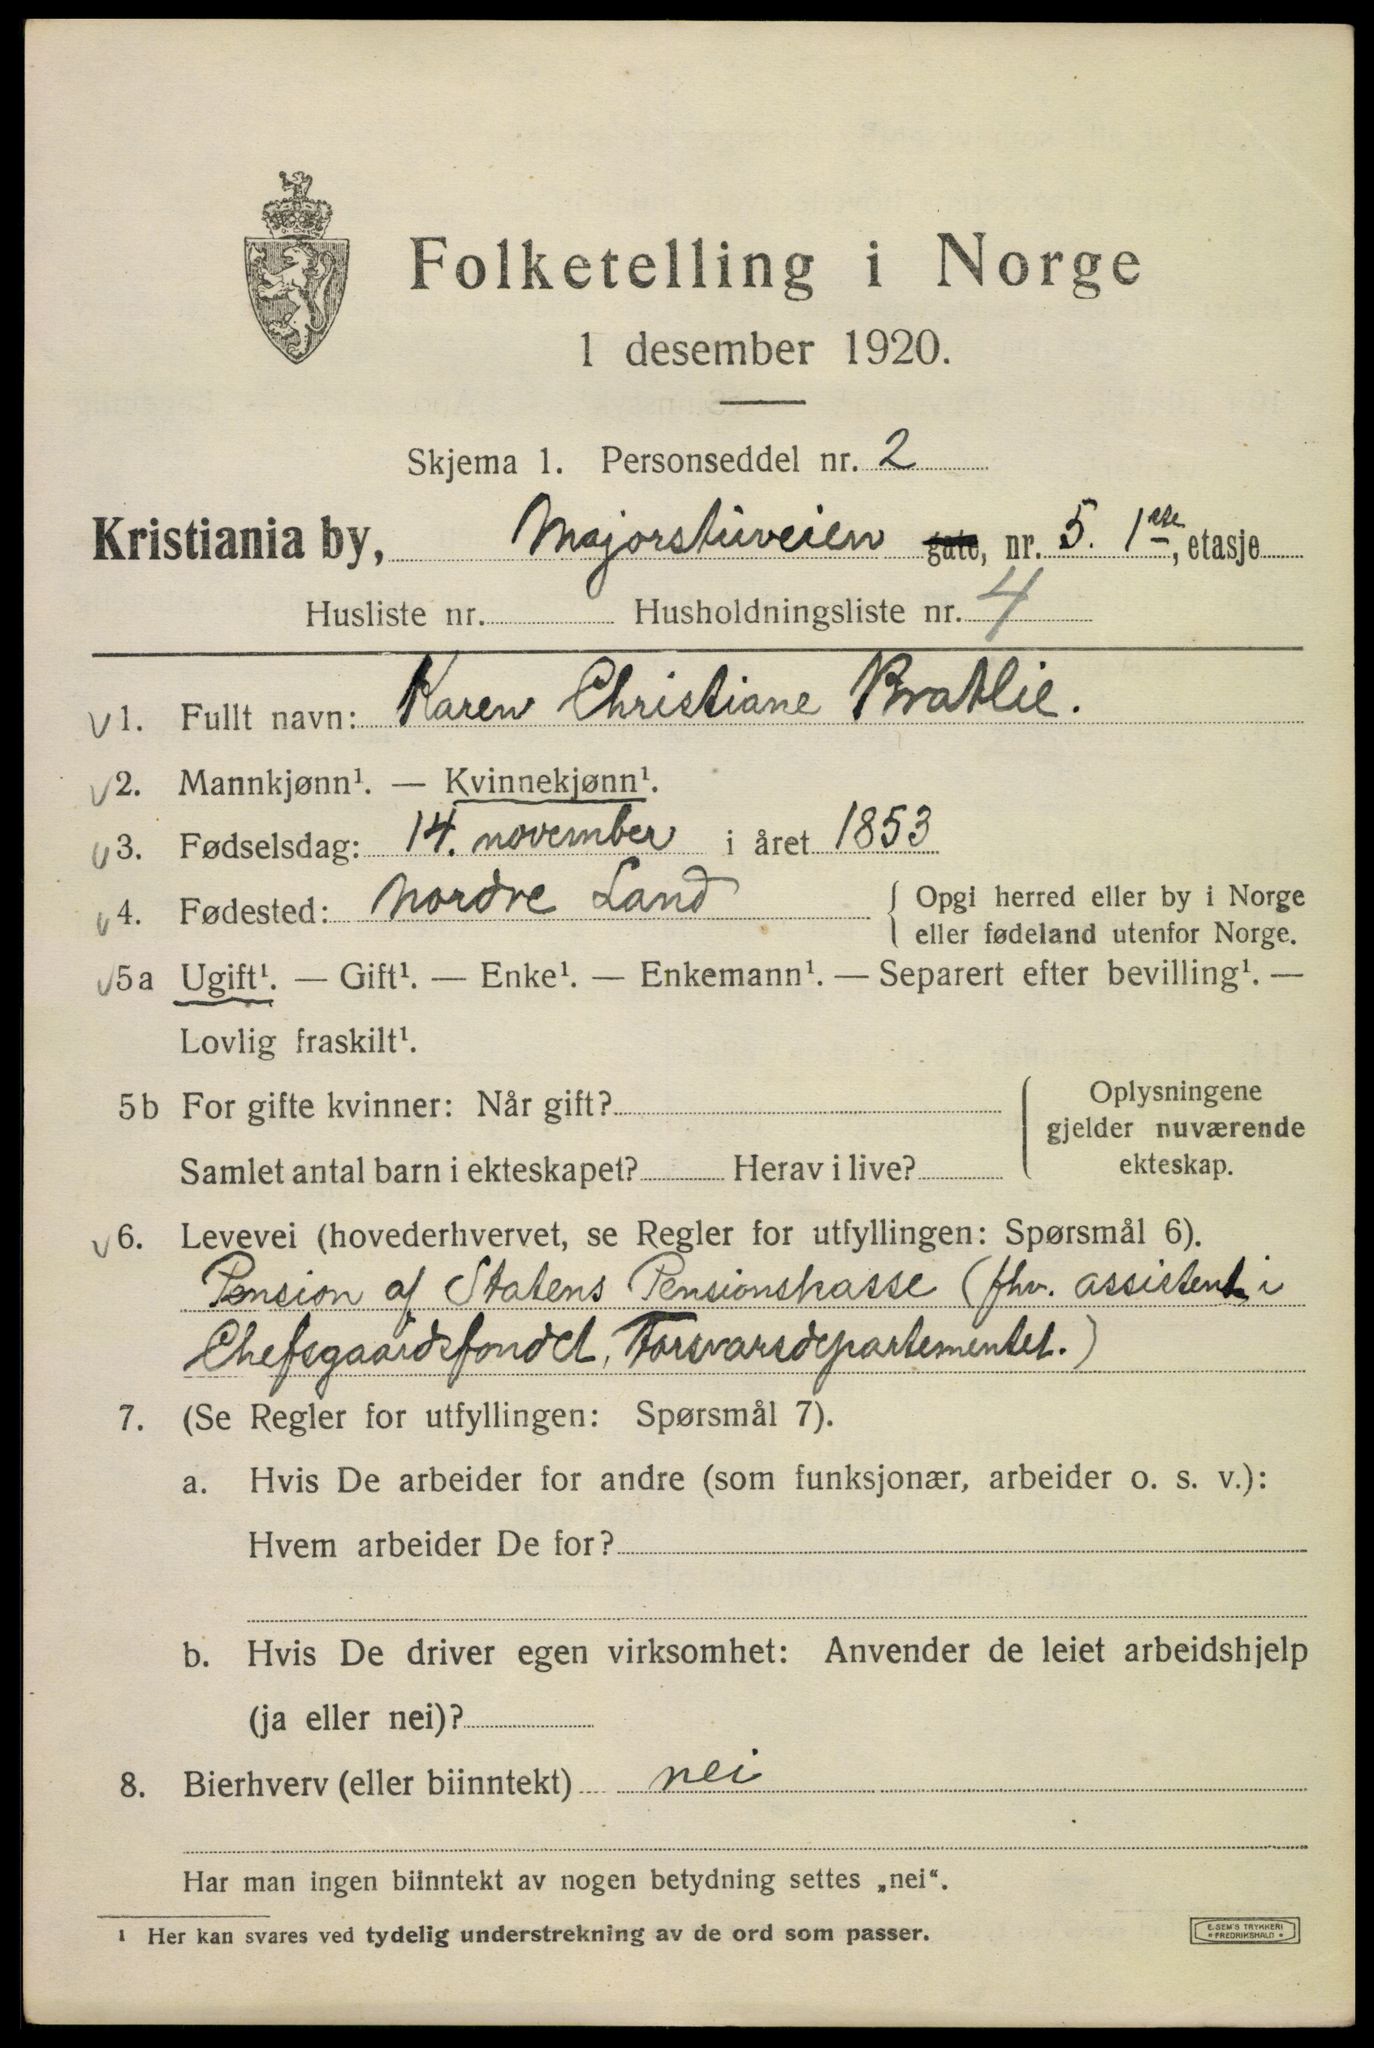 Folketelling i Norge
1 desember 1920.
Skjema 1. Personseddel nr. 2
Kristiania by, Majorstuveien gate, nr. 5. 1ste, etasje
Husliste nr. Husholdningsliste nr. 4
1. Fullt navn: Karen Christiane Bratlie.
2. Mannkjønn¹. — Kvinnekjønn¹.
3. Fødselsdag: 14. november i året 1853
4. Fødested: Nordre Land { Opgi herred eller by i Norge
eller fødeland utenfor Norge.
5a Ugift¹. — Gift¹. — Enke¹. — Enkemann¹. — Separert efter bevilling¹. —
Lovlig fraskilt¹.
5b For gifte kvinner: Når gift? { Oplysningene
gjelder nuværende
Samlet antal barn i ekteskapet? Herav i live? ekteskap.
6. Levevei (hovederhvervet, se Regler for utfyllingen: Spørsmål 6).
Pension af Statens Pensionskasse (fhv. assistent i
Chefsgaardsfondet, Forsvarsdepartementet.)
7. (Se Regler for utfyllingen: Spørsmål 7).
a. Hvis De arbeider for andre (som funksjonær, arbeider o. s. v.):
Hvem arbeider De for?
b. Hvis De driver egen virksomhet: Anvender de leiet arbeidshjelp
(ja eller nei)?
8. Bierhverv (eller biinntekt) nei
Har man ingen biinntekt av nogen betydning settes „nei“.
¹ Her kan svares ved tydelig understrekning av de ord som passer.
E. SEM'S TRYKKERI
FREDRIKSHALD